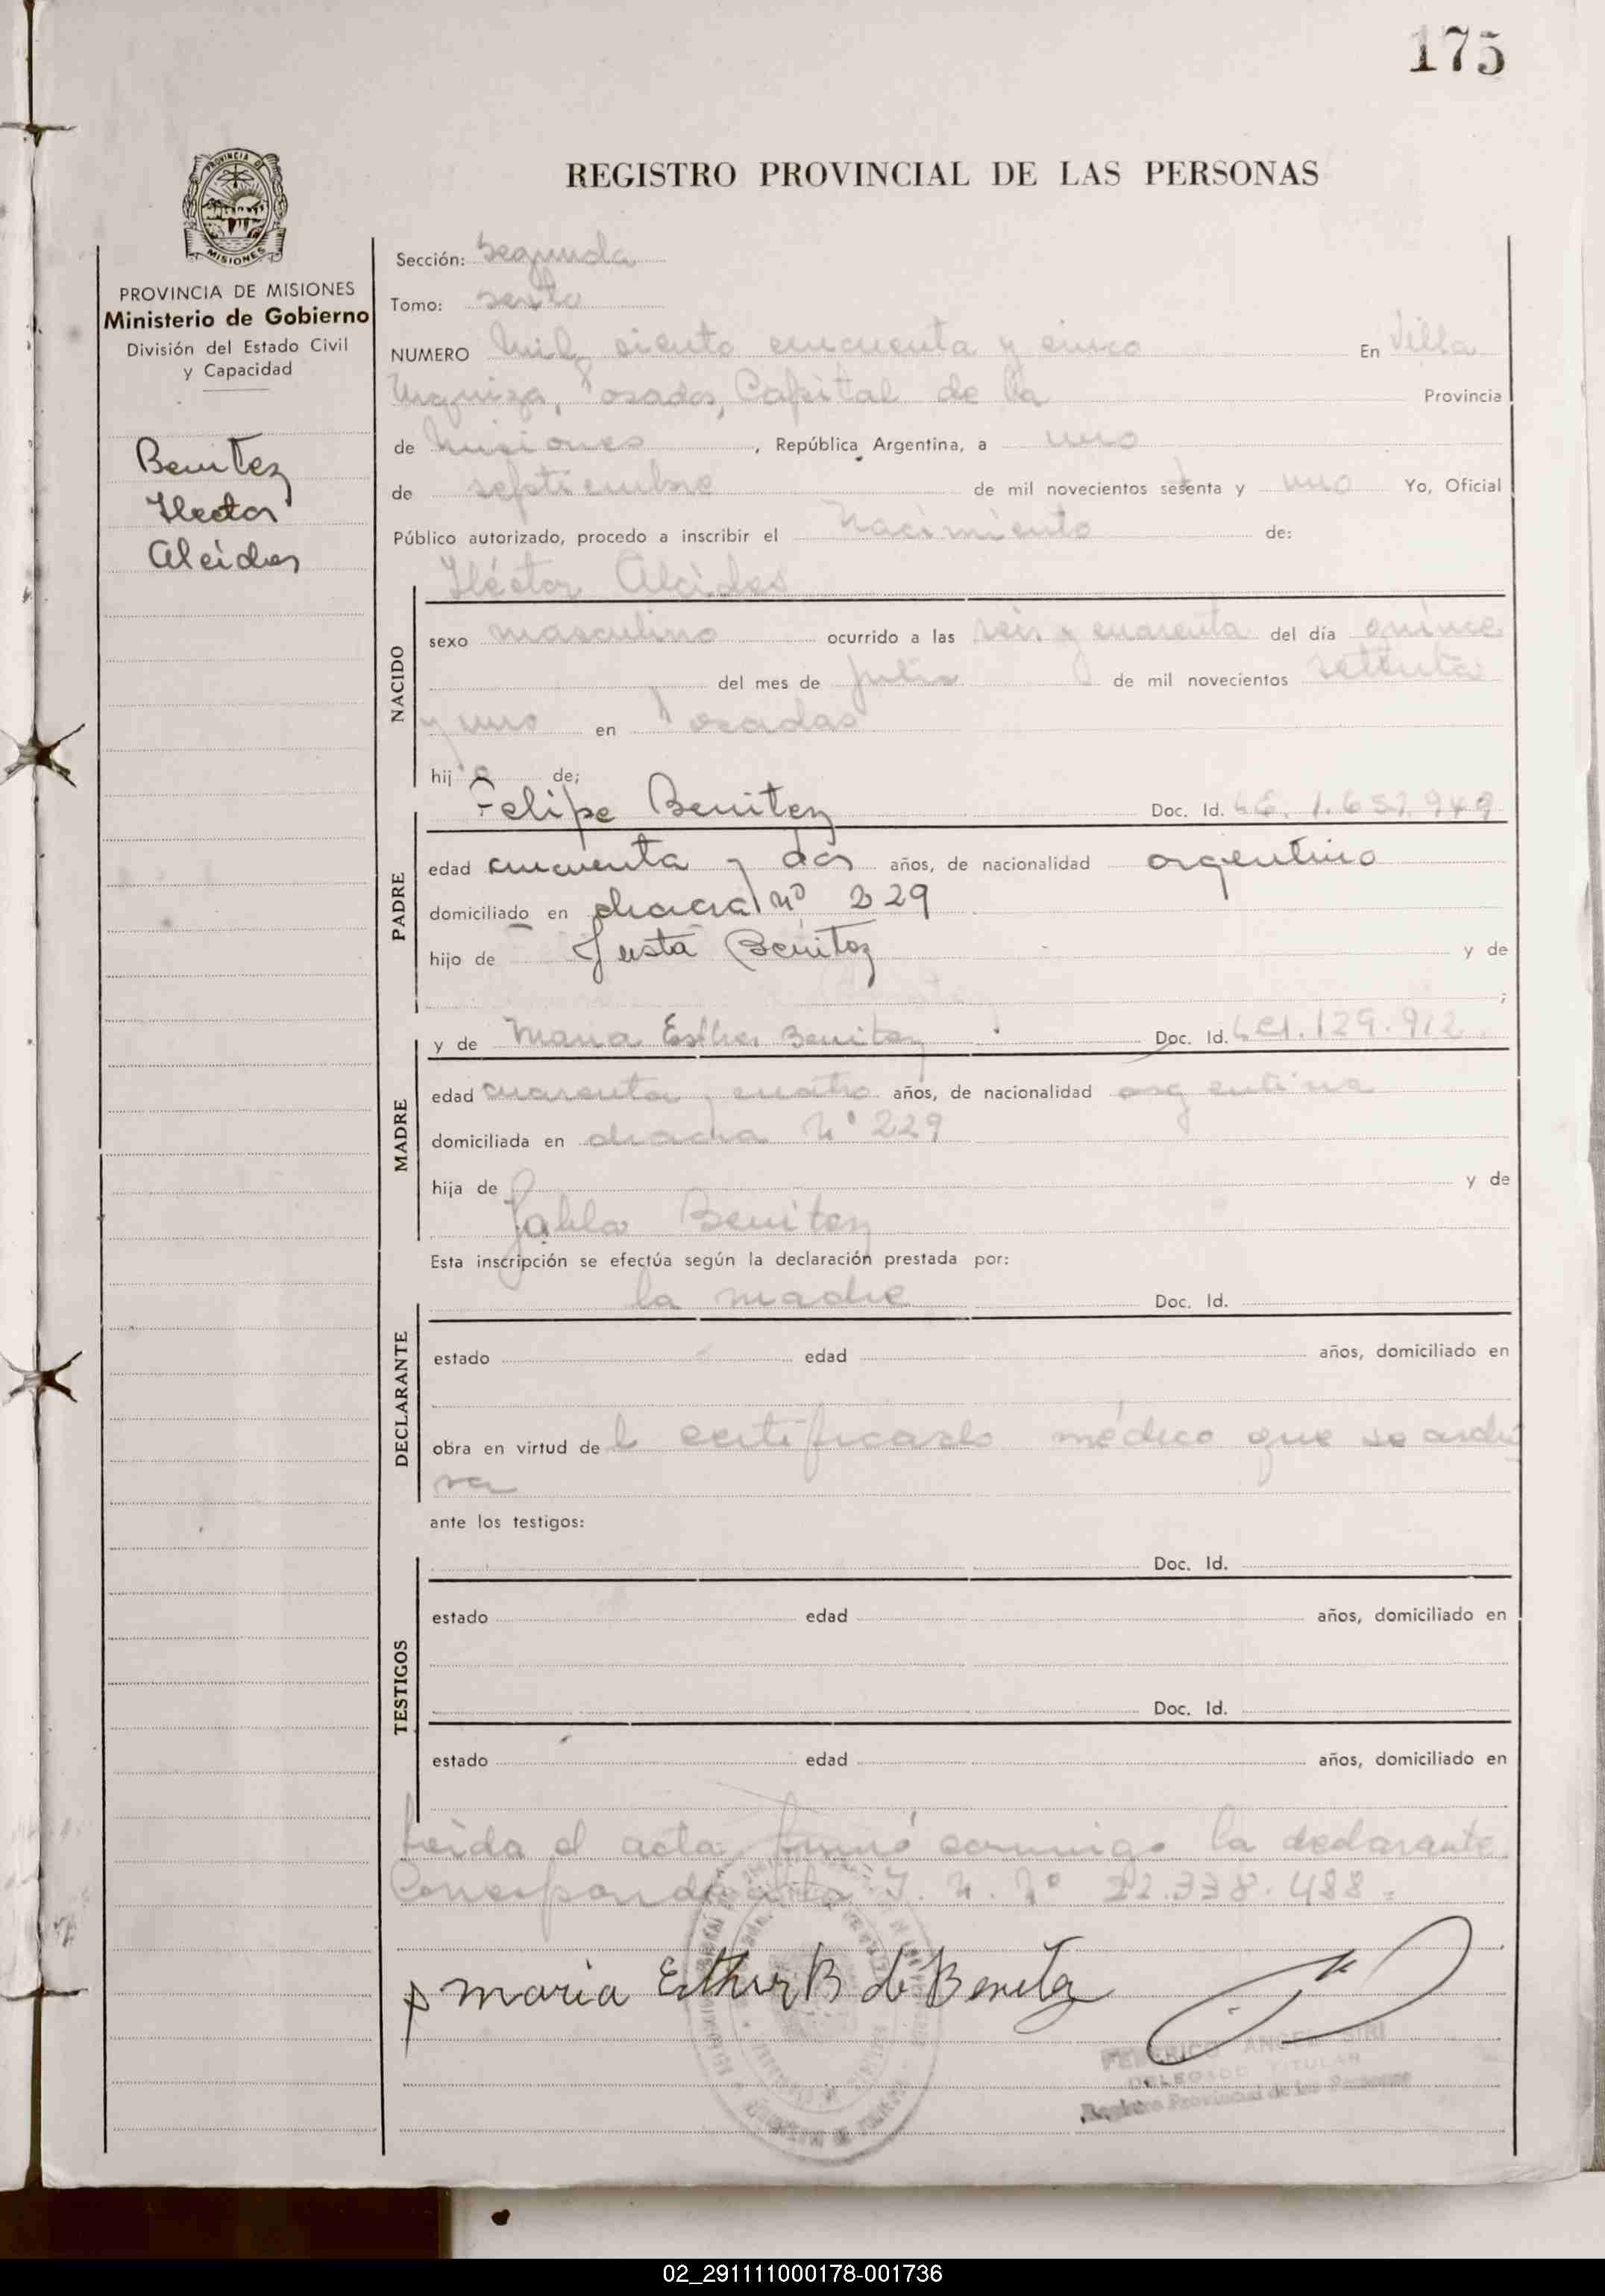 175
PROVINCIA DE
MISIONES
REGISTRO PROVINCIAL DE LAS PERSONAS
PROVINCIA DE MISIONES
Ministerio de Gobierno
División del Estado Civil
y Capacidad
Benitez
Hector
Alcides
Sección: Segunda
Tomo: sexto
NUMERO Mil, ciento cincuenta y cinco En Villa
Urquiza, Posadas, Capital de la Provincia
de Misiones, República Argentina, a uno
de septiembre de mil novecientos setenta y uno Yo, Oficial
Público autorizado, procedo a inscribir el Nacimiento de:
Héctor Alcides
NACIDO
sexo masculino ocurrido a las seis y cuarenta del día quince
del mes de julio de mil novecientos setenta
y uno en Posadas
hijo de;
Felipe Benitez Doc. Id.
PADRE
edad cincuenta y dos años, de nacionalidad argentino
domiciliado en chacra nº 229
hijo de Justa Benitez y de
;
y de Maria Esther Benitez Doc. Id. 129.912
MADRE
edad cuarenta y cuatro años, de nacionalidad argentina
domiciliada en chacra Nº 229
hija de y de
Pabla Benitez
Esta inscripción se efectúa según la declaración prestada por:
la madre Doc. Id.
DECLARANTE
estado edad años, domiciliado en
obra en virtud del certificado médico que se archi
va
ante los testigos:
Doc. Id.
TESTIGOS
estado edad años, domiciliado en
Doc. Id.
estado edad años, domiciliado en
Leida el acta, firmó conmigo la declarante
Correspondiente I. N. Nº 22.338.488=
Maria Esther B de Benitez
FEDERICO ANGEL SIRI
DELEGADO TITULAR
Registro Provincial de las Personas
02_291111000178-001736